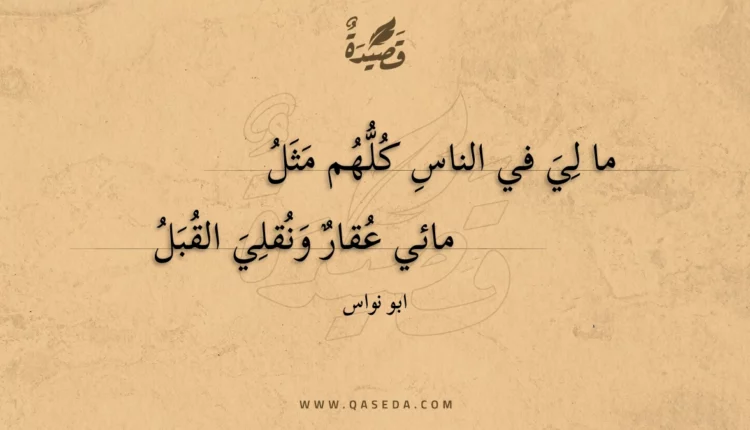 قَصِيدَةٌ
ما لِيَ في الناسِ كُلُّهُم مَثَلُ
مائي عُقارٌ وَنُقلِيَ القُبَلُ
ابو نواس
WWW.QASEDA.COM